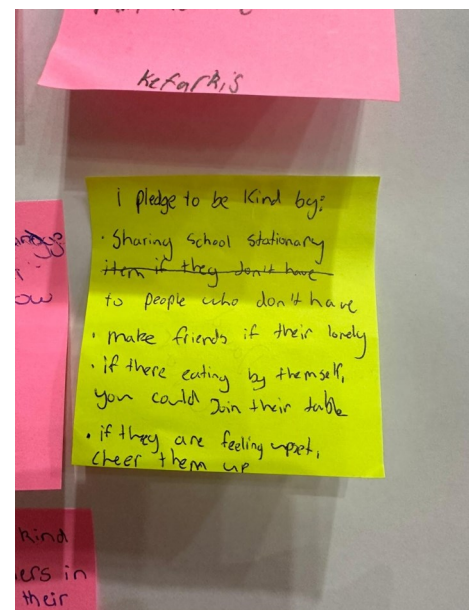 Kefarkis
i pledge to be Kind by:
• Sharing School Stationary
item if they don't have
to people who don't have
• make friends if their lonely
• if there eating by themself,
you could Join their table
• if they are feeling upset,
cheer them up
ow
kind
ers in
their